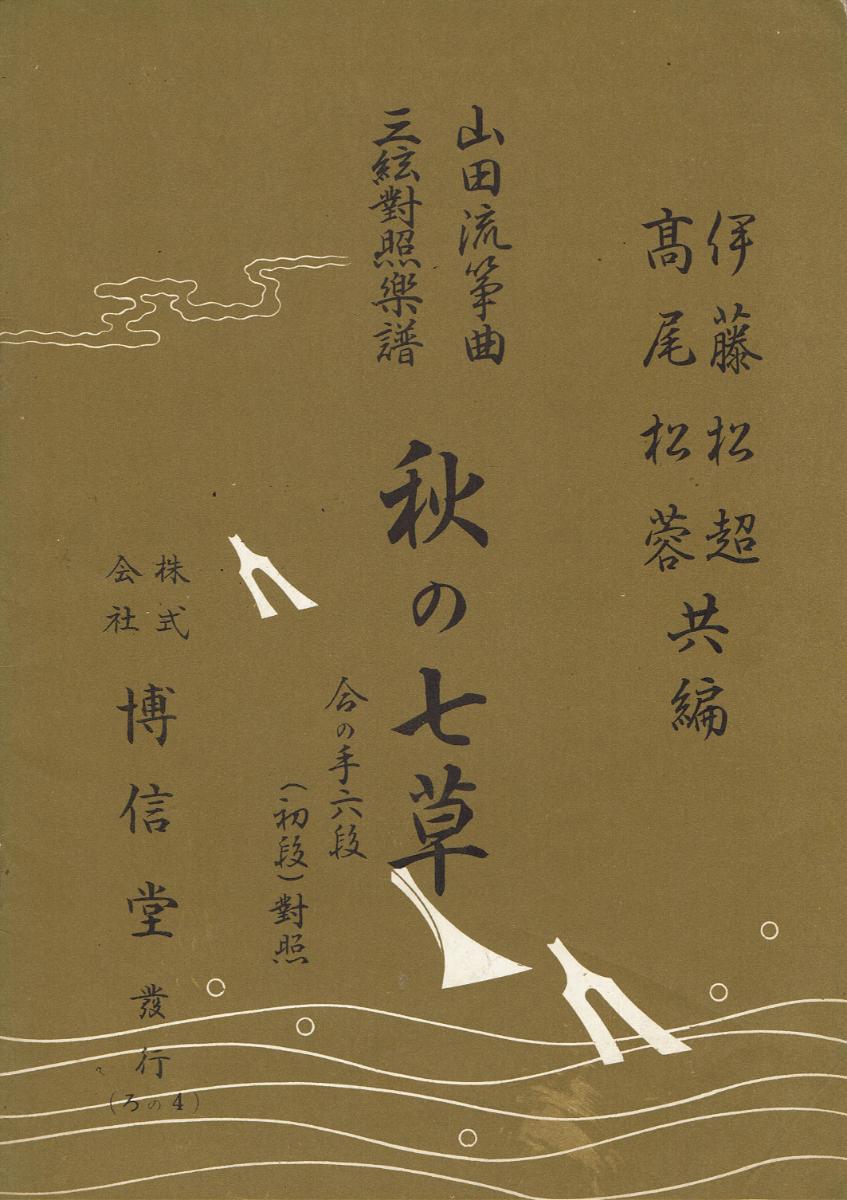 伊藤松超
髙尾松蓉
共編
山田流箏曲
三絃對照樂譜
秋の七草
合の手六段
(初段)對照
株式
会社
博信堂發行
(ろの4)